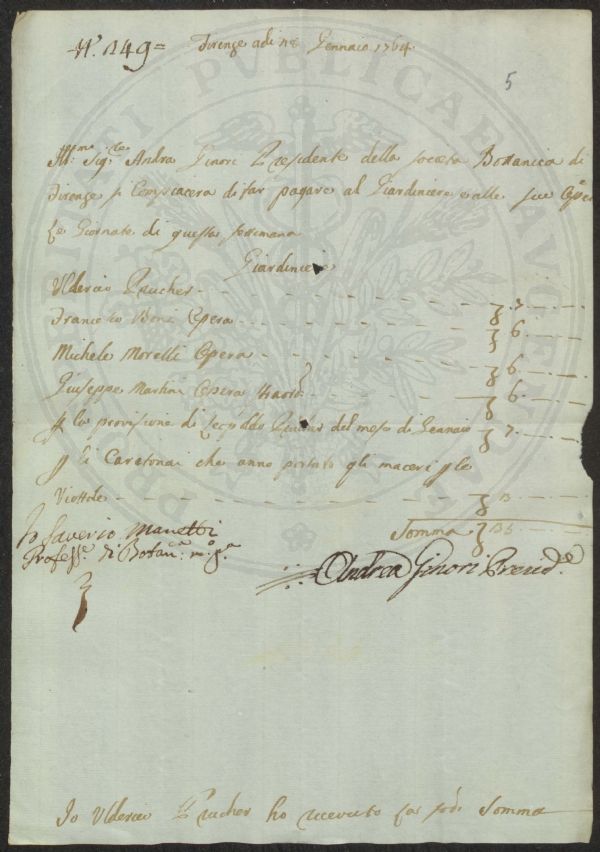 N.° 149 =
Firenze adi 28 Gennaio 1764
5
Ill:mo Sig:re Andra Ginori Presidente della società Bottanica di
Firenze si Compiacera di far pagare al Giardiniere e alle sue Opere
le Giornate di questa settimana
Giardiniere
Ulderico Prucher
Francesco Bini Opera 6
Michele Morelli Opera 6
Giuseppe Martini Opera 6
p la provisione di Leopoldo Prucher del mese di Gennaio 7
p li Caretonai che anno portato gli maceri p le
Viottole
Somma
Io Saverio Manetti
Profess:e di Botan:ca
Andrea Ginori Presid:e
Io Ulderico Prucher ho ricevuto la sud:a Somma
PUBLICAE